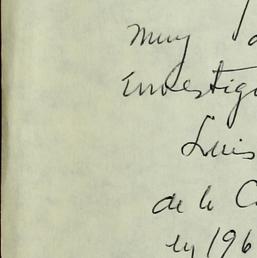 muy
Investig
Luis
de la C
196